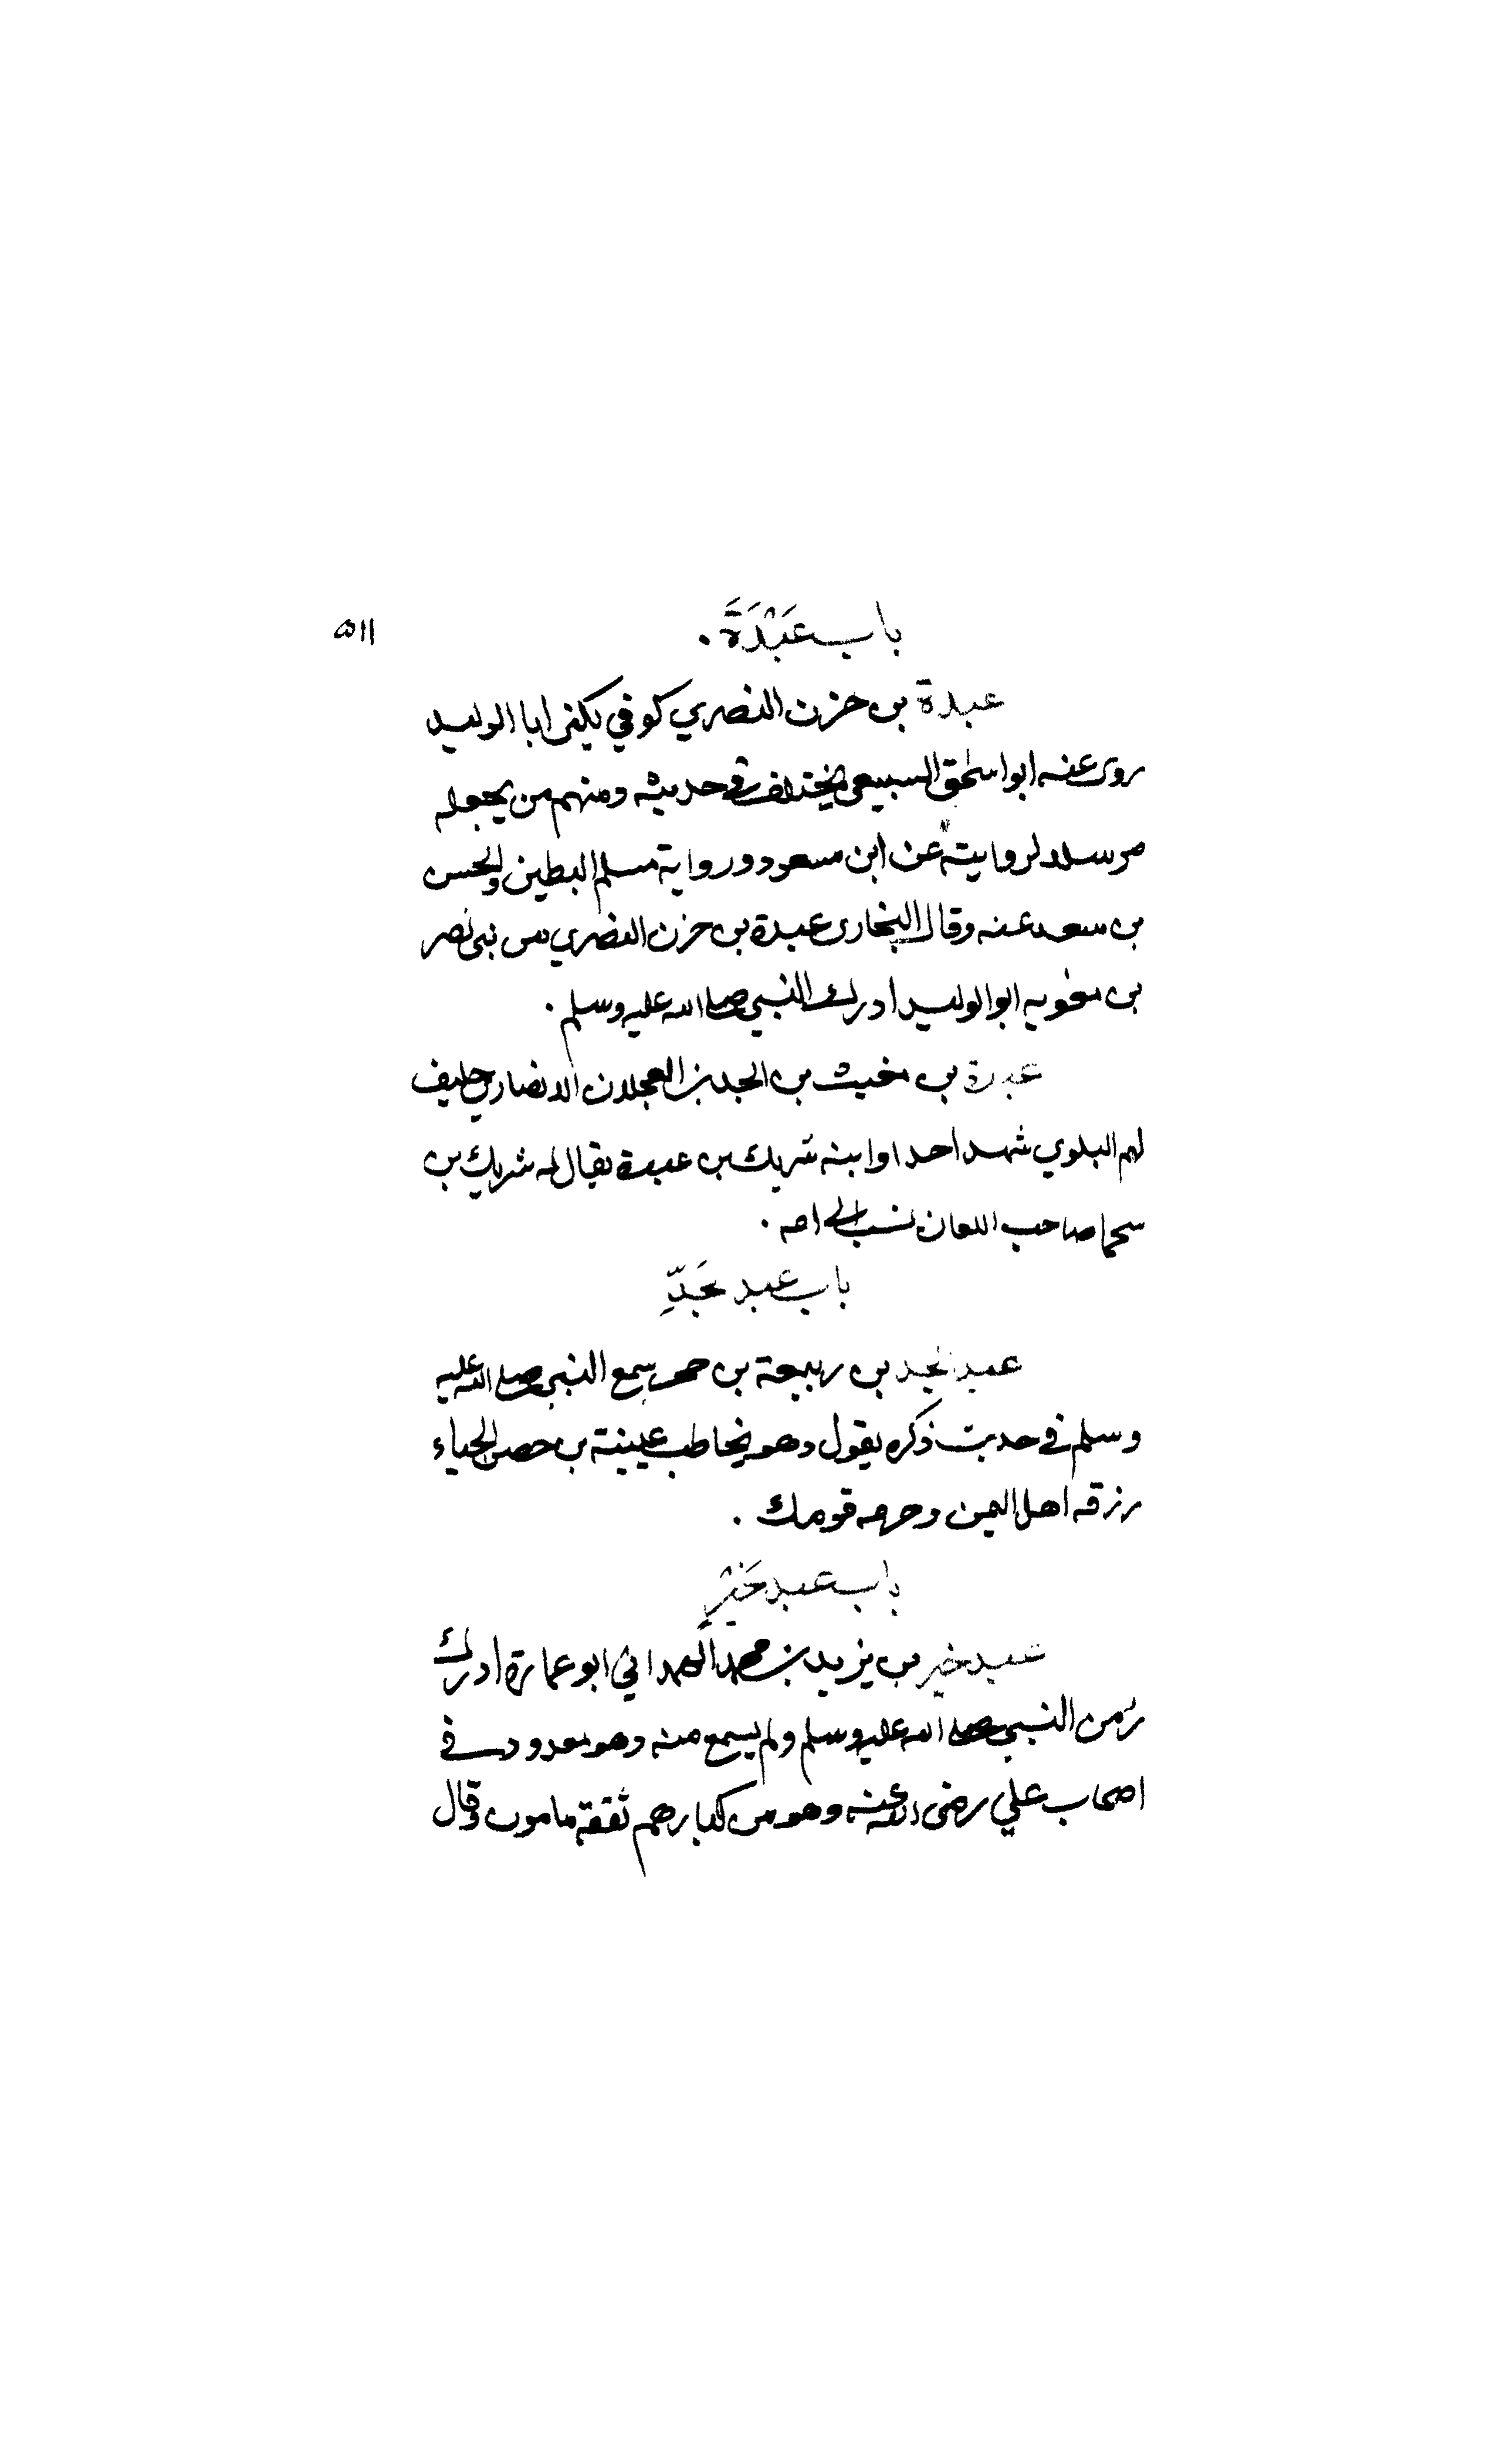 ٥١١
باب عَبْدَةَ .
عبدة بن حزن النصري كوفي يكنى ابا الوليد
روى عنه ابو اسحق السبيعي يختلف في حديثه ومنهم من يجعله
مرسلا لروايته عن ابن مسعود ورواية مسلم البطين والحسن
بن سعد عنه وقال البخارى عبدة بن حزن النصري من بني نصر
بن معويه ابو الوليد ادرك النبي صلى الله عليه وسلم .
عبدة بن مغيث بن الجد بن العجلان الانصاري حليف
لهم البلوي شهد احدا وابنه شريك بن عبدة يقال له شريك بن
سحما صاحب اللعان نسب الى امه .
باب عبد جَدِّ
عبد الجد بن ربيعة بن حجر سمع النبي صلى الله عليه
وسلم في حديث ذكره يقول وهو يخاطب عيينة بن حصن الحياء
رزقه اهل اليمن وحرمه قومك .
باب عبد خَيْرٍ
عبد خير بن يزيد بن محمد الهمداني ابو عمارة ادرك
زمن النبي صلى الله عليه وسلم ولم يسمع منه وهو معدود في
اصحاب علي رضى الله عنه وهو من كبارهم ثقة مامون وقال